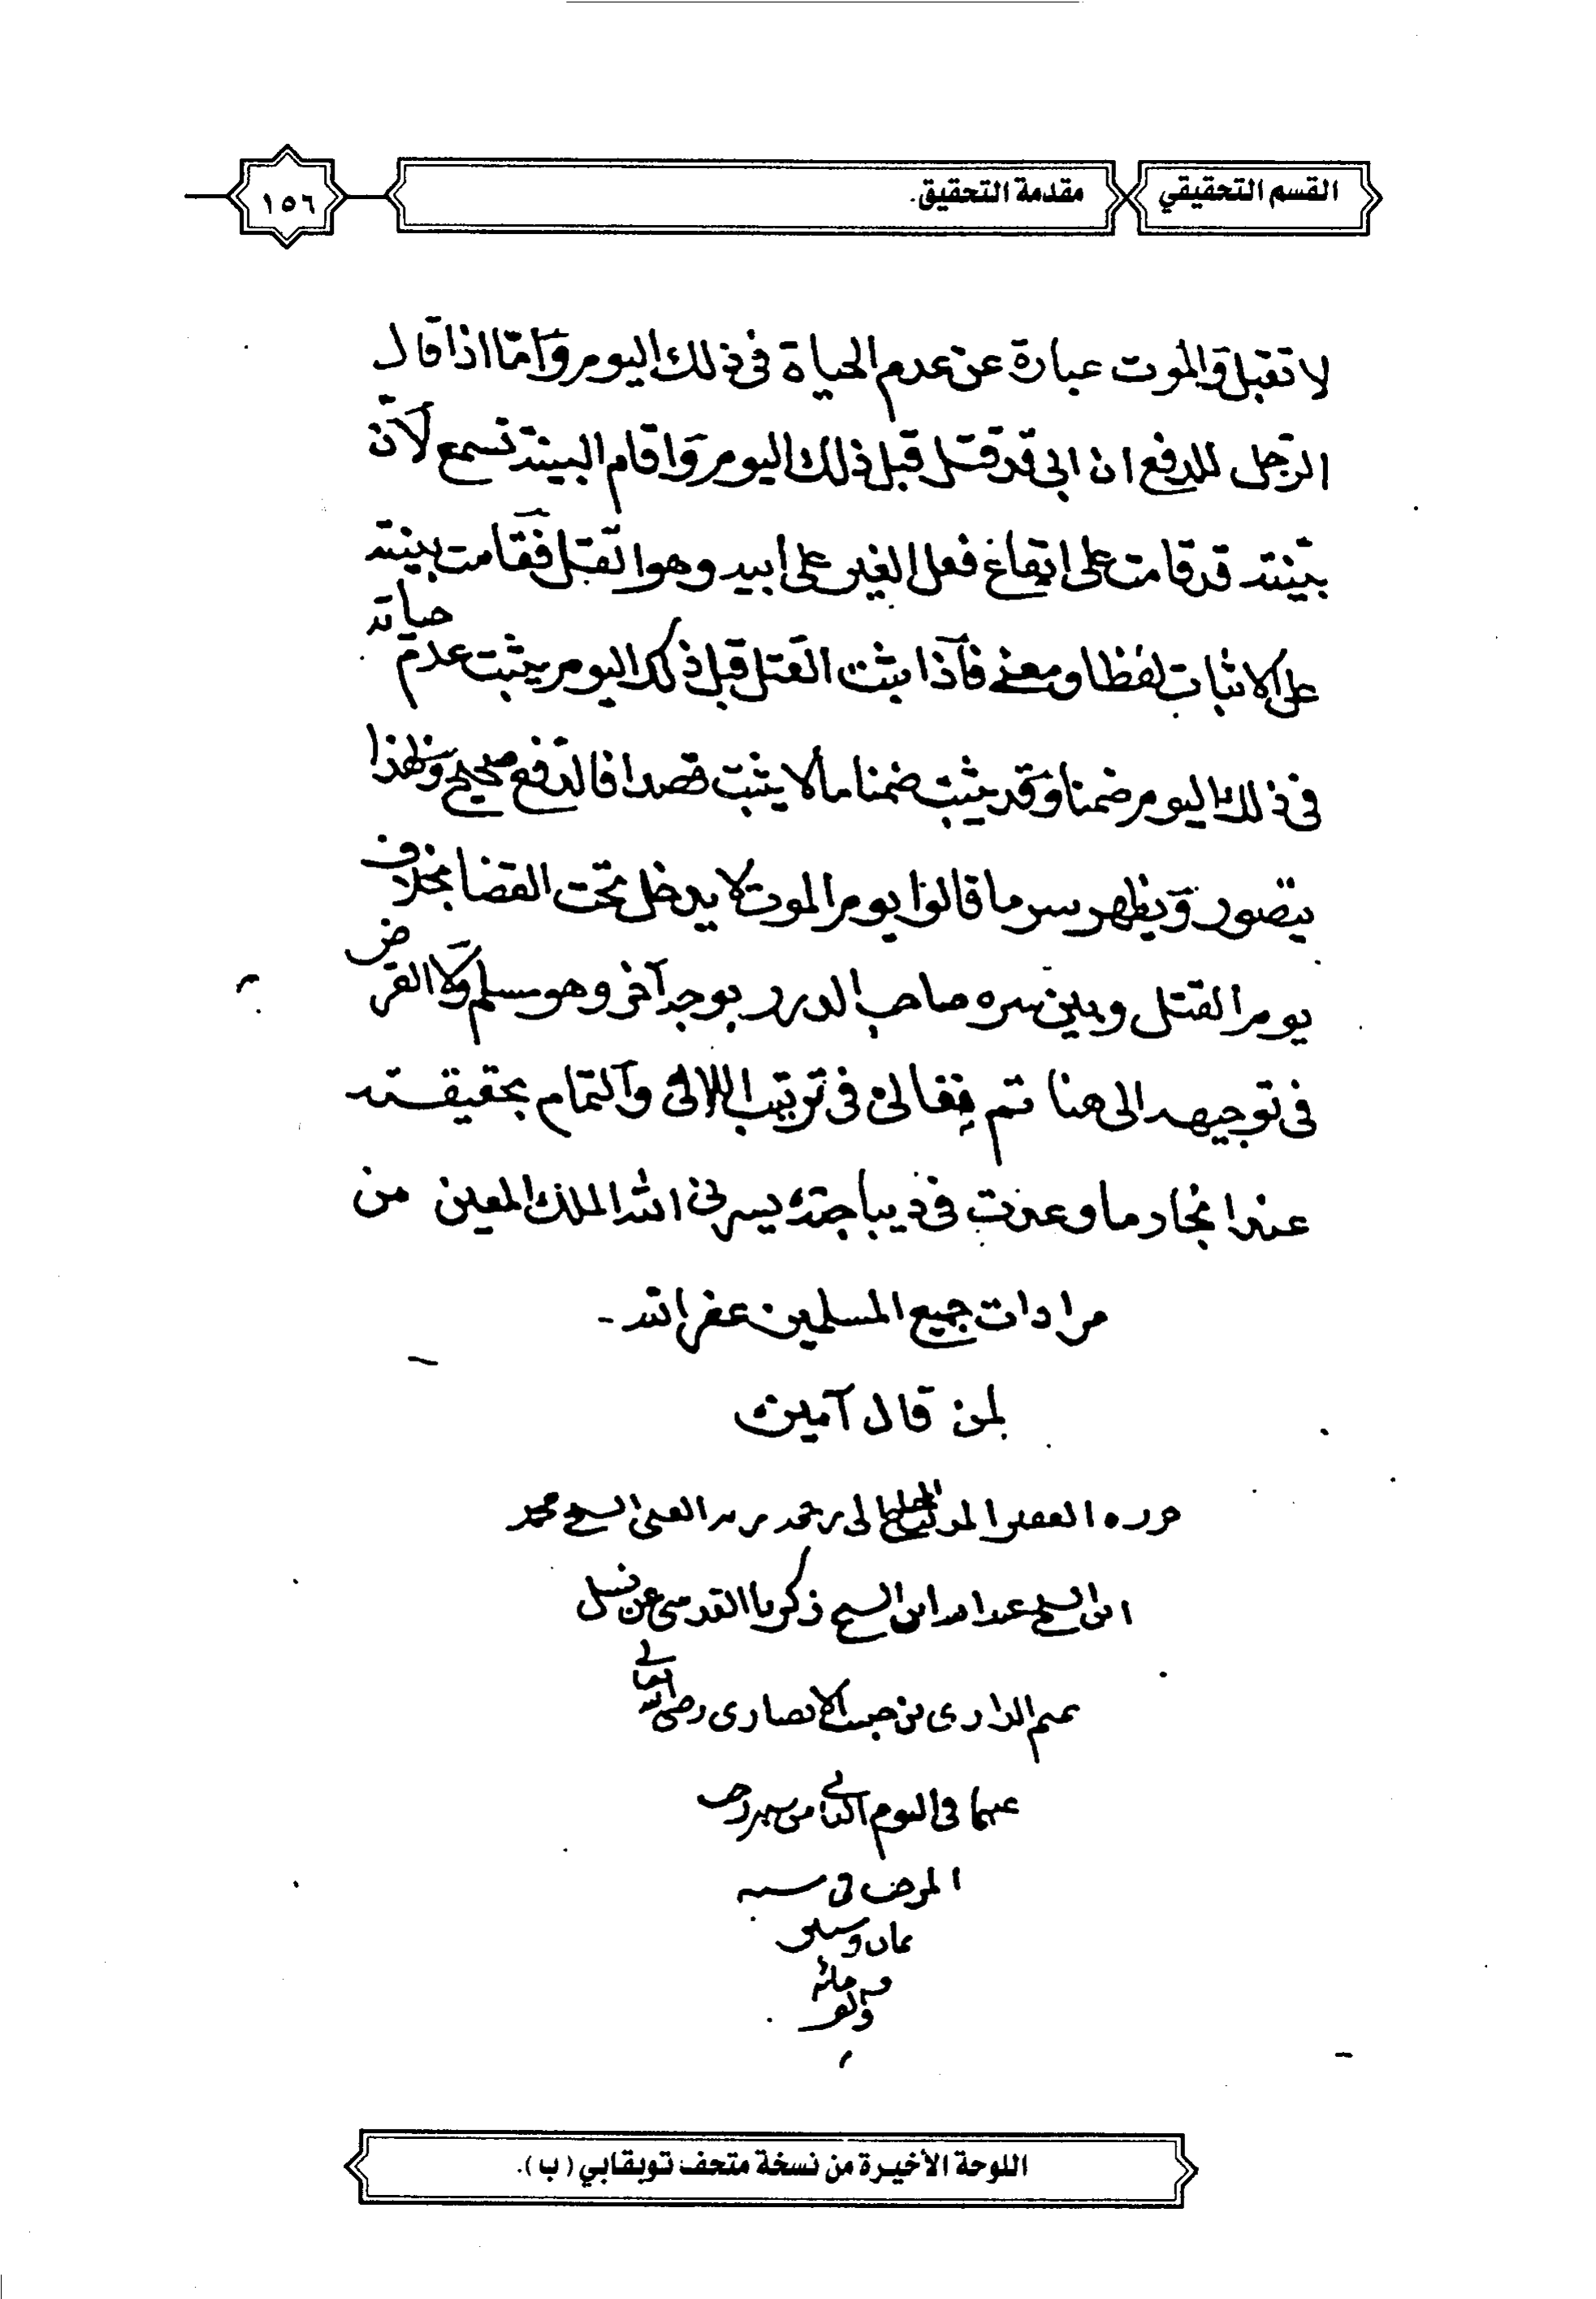 القسم التحقيقي
مقدمة التحقيق.
١٥٦
لا تقبل والموت عبارة عن عدم الحياة في ذلك اليوم وامّا اذا قال
الرجل للدفع ان ابي قد قتل قبل ذلك اليوم واقام البينة تسمع لانّ
بيّنته قد قامت على ايقاع فعل الغير على ابيه وهو القتل فقامت بينته
على الاثبات لفظا ومعنى فاذا يثبت القتل قبل ذلك اليوم يثبت عدم حياته
في ذلك اليوم ضمنا وقد يثبت ضمنا ما لا يثبت قصدا فالدفع صحيح ولهذا
يتصور ويظهر سر ما قالوا يوم الموت لا يدخل تحت القضا بخلاف
يوم القتل وبين سره صاحب الدرر بوجه آخر وهو مسلم ولا القرض
في توجيهه الى هنا تم مقالى في ترتيب اللالئ والتمام بحقيقته
عند انجاز ما وعدت في ديباجته يسر لي الله الملك المعين من
مرادات جميع المسلمين غفر الله
لمن قال آمين
حرره الفقير الى رحمة ربه الغنى الشيخ محمد
ابن الشيخ عبد الله ابن الشيخ زكريا القدسي عن نسل
تميم الدارى بن حبيب الانصارى رضى الله تعالى
عنهما في اليوم الثاني من شهر رجب
المرجب في سنة
ثمان و
مائة
والف
اللوحة الأخيرة من نسخة متحف توبقابي (ب).